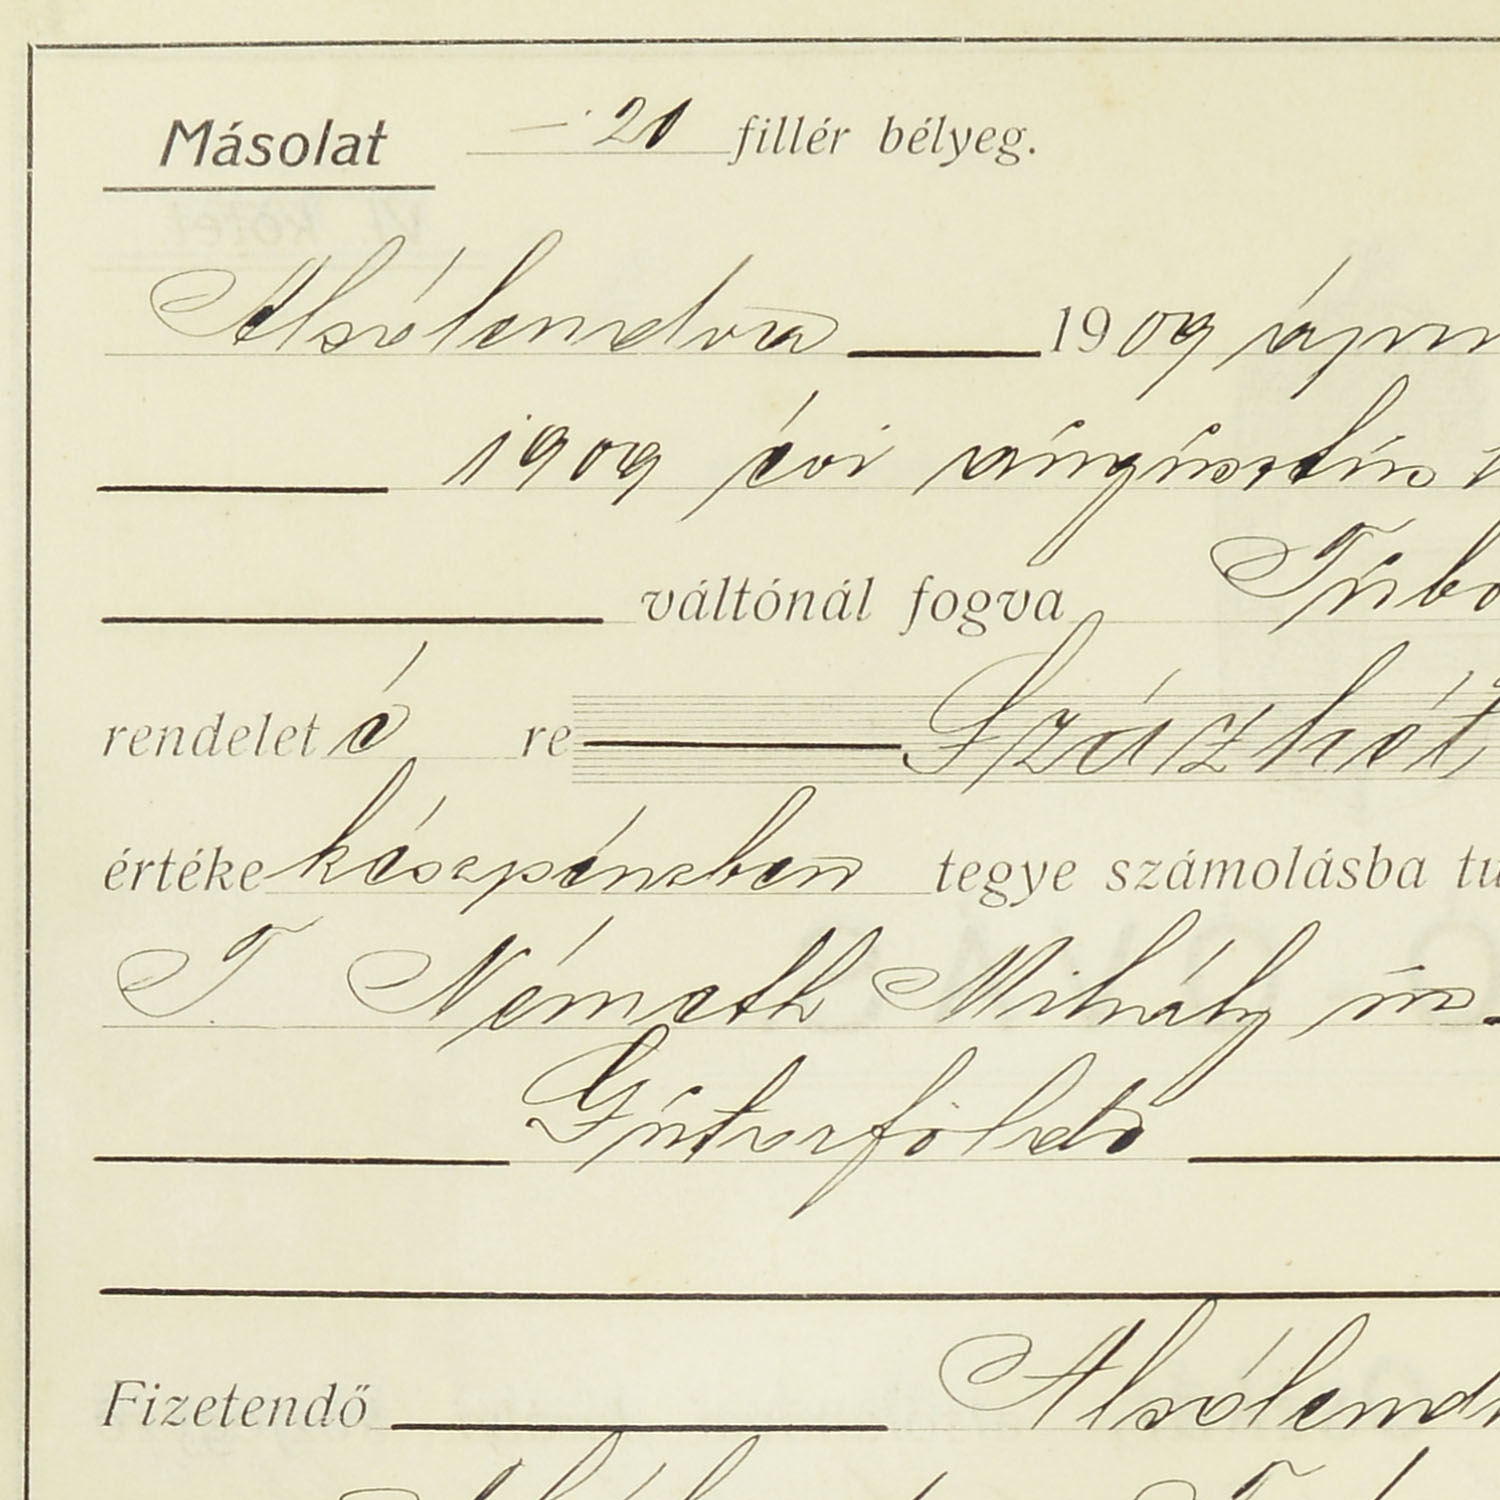 Másolat — 20 fillér bélyeg.
Alsólendva 1909 ápri
1909 évi augusztus
váltónál fogva
rendelet é re Százhet
értéke készpénzben tegye számolásba tu
T. Németh Mihály úr
Gutorföldö
Fizetendő Alsólend